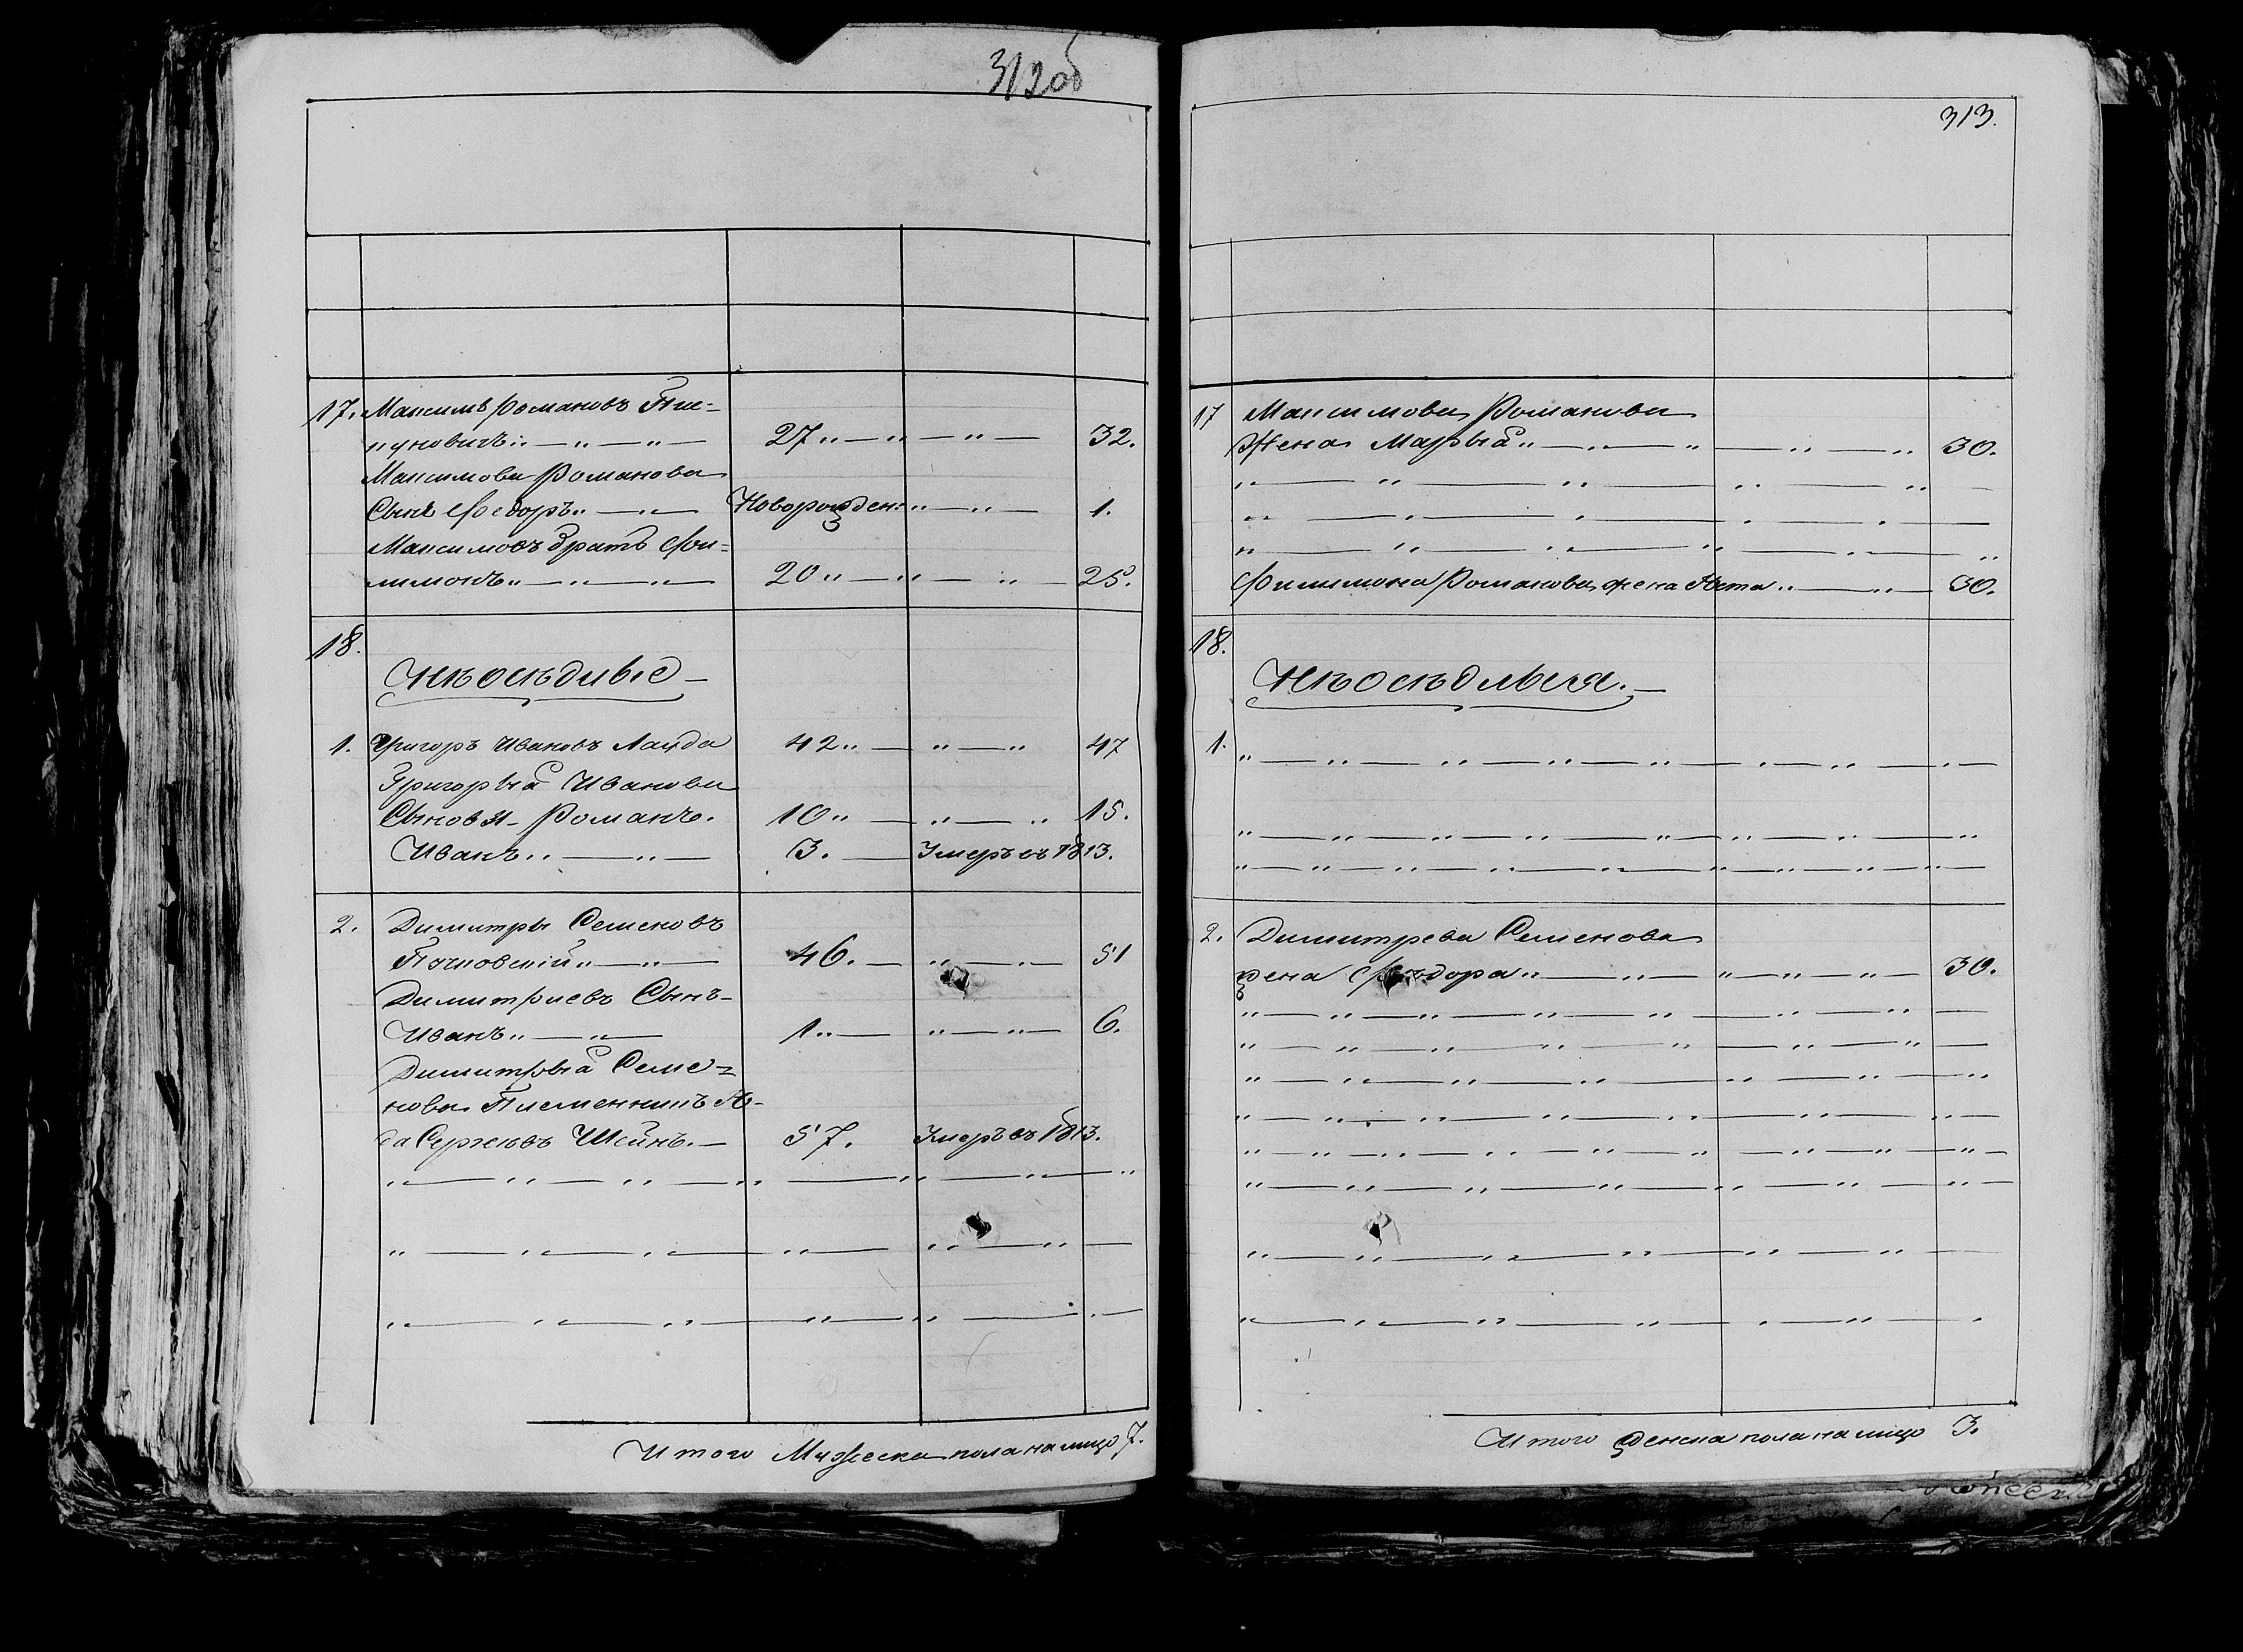 312об
17. Максимъ Романовъ Пле=
пуновичъ 27 32.
Максимова Романова
Сынъ Феодоръ Новорожден: 1.
Максимовъ братъ Фи=
лимонъ 20 25.
18.
Нѣосѣдлые
1. Григоръ Ивановъ Лайда 42 47
Григорыя Иванова
Сыновя Романъ. 10 15.
Иванъ 3. Умеръ въ 1813.
2. Димитры Семеновъ
46. 51
Димитриевъ Сынъ
Иванъ 1 6.
Димитрыя Семе=
нова Племенникъ
Сергеювъ Шейнъ. 57. Умеръ въ 1813.
Итого Мужеска пола на лицо 7.
313.
17 Максимова Романова
Жена Марыя 30.
Филимона Романова жена 30.
18.
Нѣосѣдлыя.
1.
2. Димитрева Семенова
жена Фѣдора 30.
Итого женска пола на лицо 3.